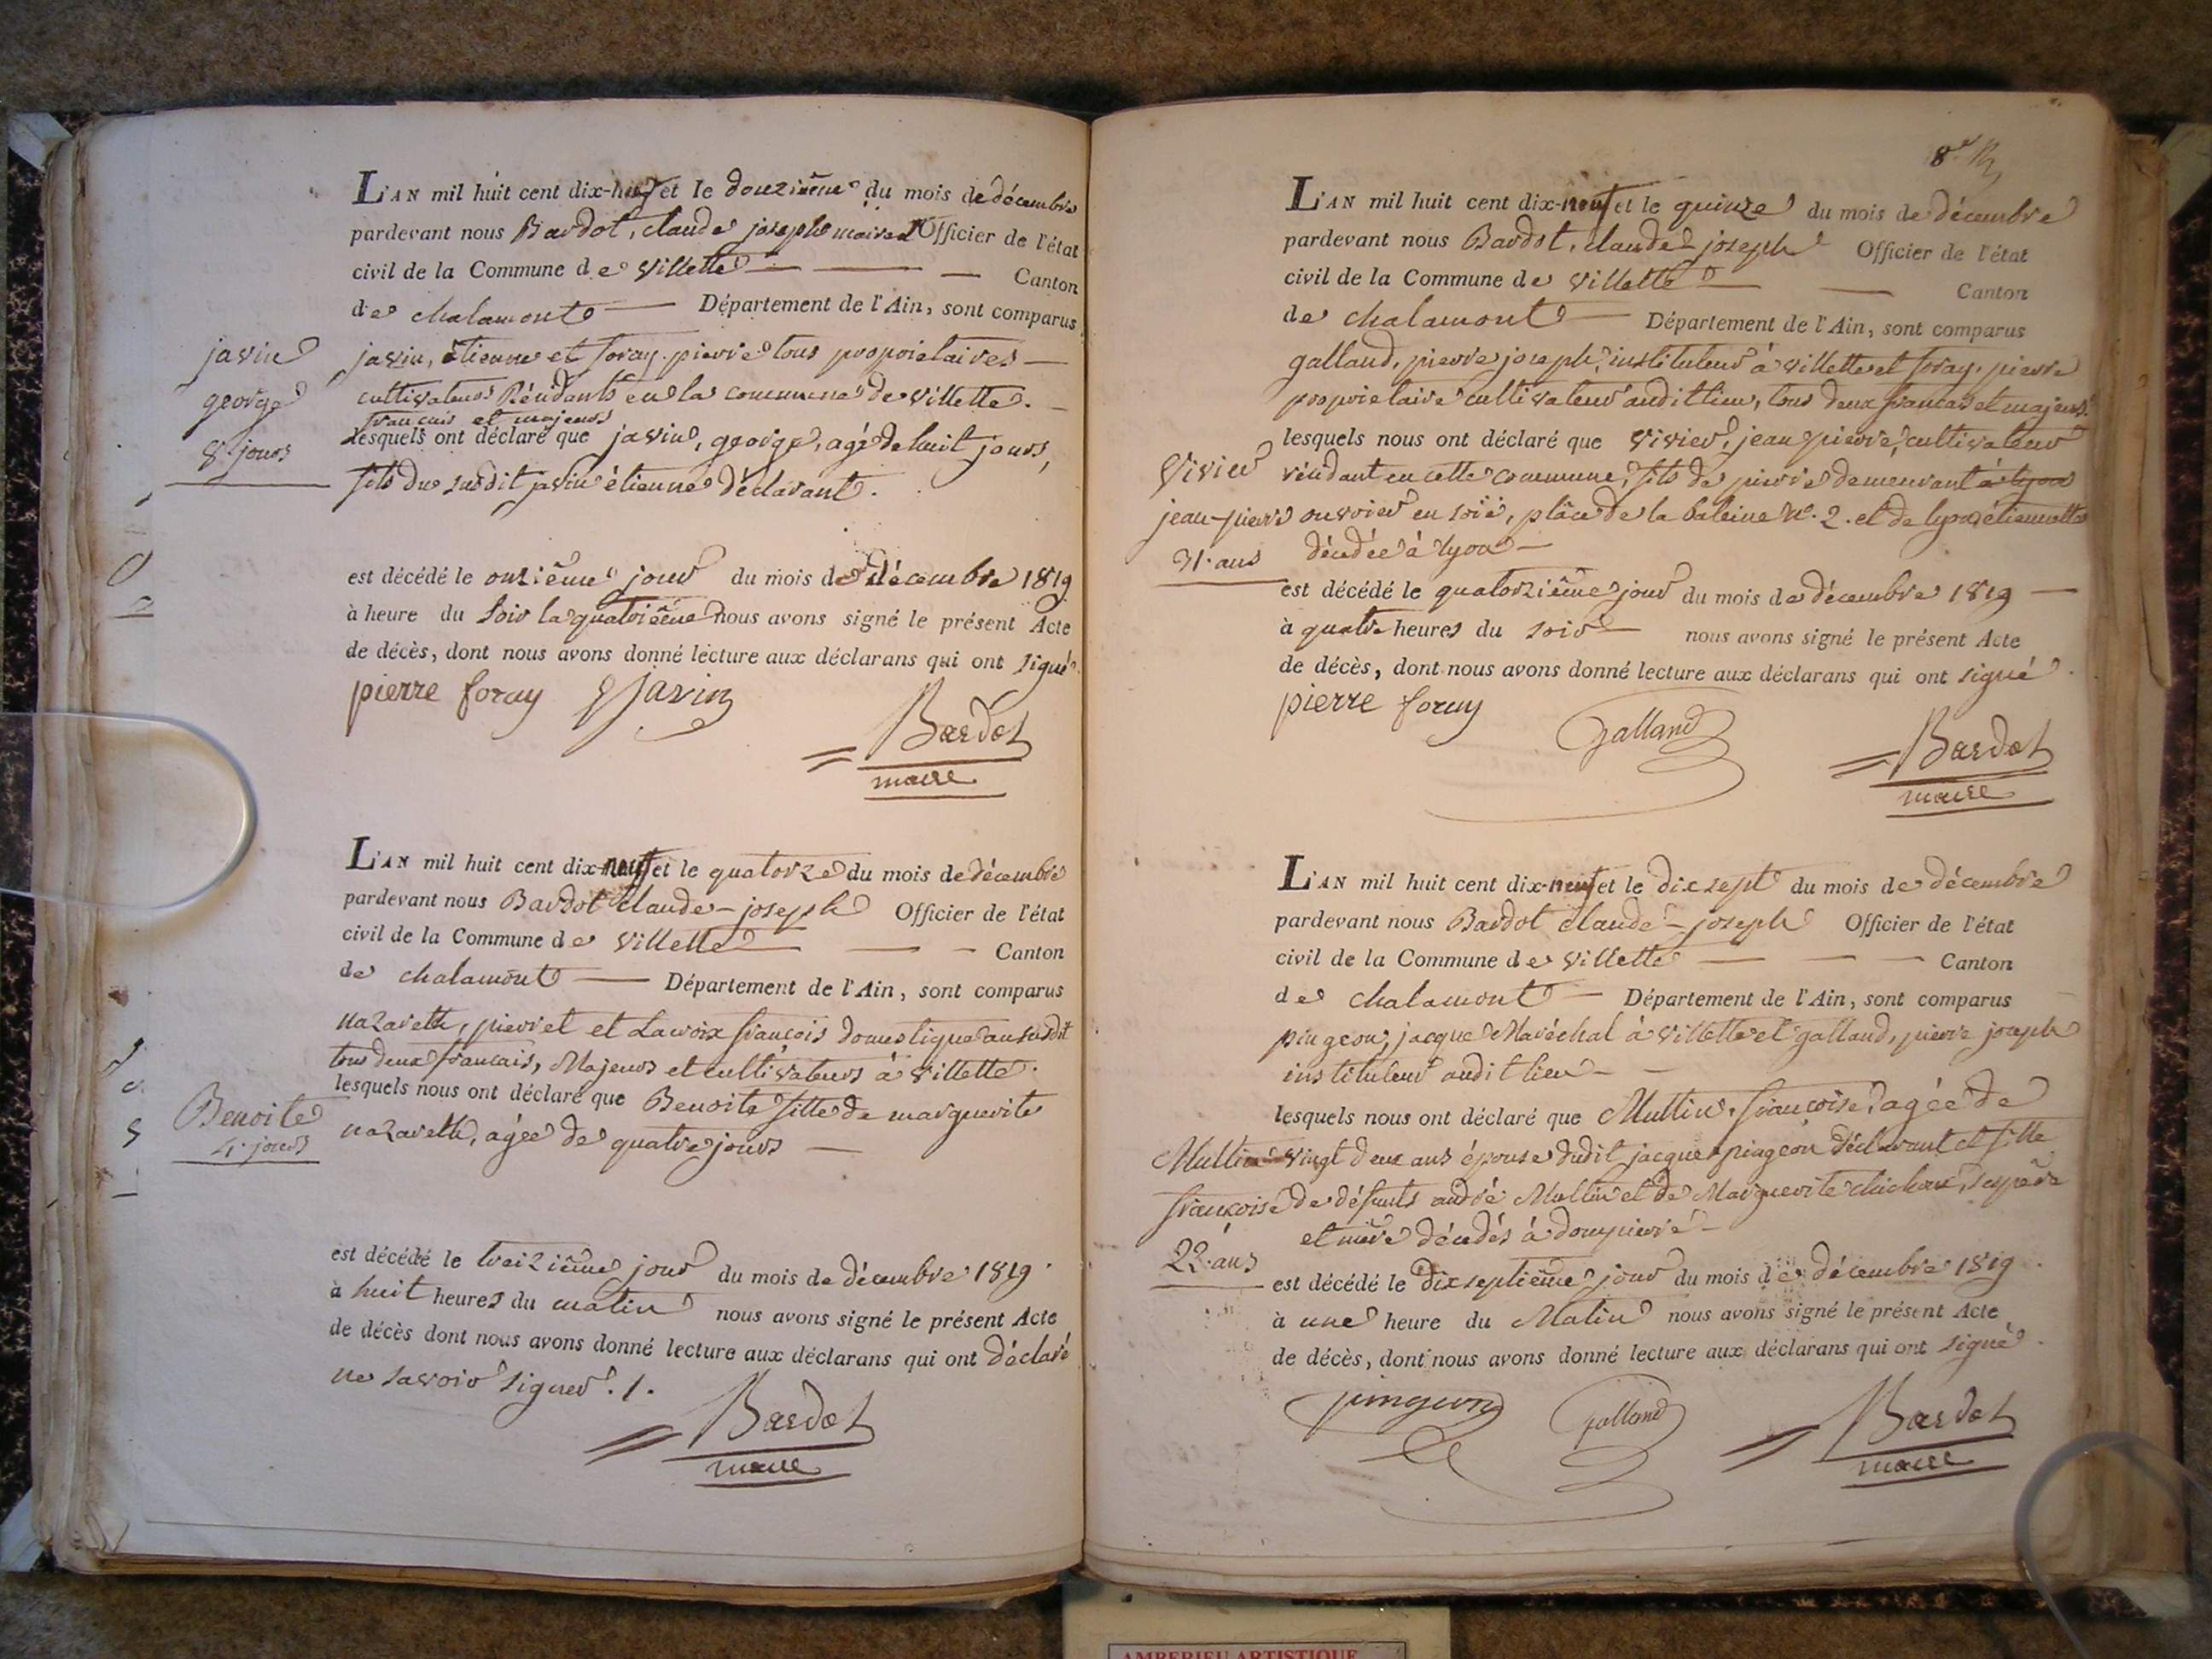 L'AN mil huit cent dix-neuf et le douzième du mois de décembre
pardevant nous Bardot, claude joseph maire Officier de l'état
civil de la Commune de villette Canton
de chalamont Département de l'Ain, sont comparus
javin, étienne et foray pierre tous propriétaires
cultivateurs Résidants en la commune de villette.
français et majeurs
lesquels ont déclaré que javin, george, agé de huit jours,
fils du susdit javin étienne déclarant.
javin
george
8 jours
est décédé le onzième jour du mois de décembre 1819
à heure du soir la quatrième nous avons signé le présent Acte
de décès, dont nous avons donné lecture aux déclarans qui ont signé
pierre foray Javin
Bardot
maire
L'AN mil huit cent dix-neuf et le quatorze du mois de décembre
pardevant nous Bardot claude-joseph Officier de l'état
civil de la Commune de villette Canton
de chalamont Département de l'Ain, sont comparus
nazareth, pierret et Lacroix françois domestique au susdit
tous deux français, Majeurs et cultivateurs à villette.
lesquels nous ont déclaré que Benoite fille de marguerite
nazareth, agée de quatre jours
Benoite
4. jours
est décédé le treizième jour du mois de décembre 1819
à huit heures du matin nous avons signé le présent Acte
de décès dont nous avons donné lecture aux déclarans qui ont déclaré
ne savoir signer ./.
Bardot
maire
8e
L'AN mil huit cent dix-neuf et le quinze du mois de décembre
pardevant nous Bardot, claude joseph Officier de l'état
civil de la Commune de villette Canton
de chalamont Département de l'Ain, sont comparus
galland, pierre joseph, instituteur à villette et foray, pierre
propriétaire cultivateur audit lieu, tous deux français et majeurs.
lesquels nous ont déclaré que vivier, jean pierre, cultivateur
résidant en cette commune, fils de pierre demeurant à lyon
ouvrier en soïe, plâce de la baleine No. 2. et de étiennette
décédée à lyon
Vivier
jean-pierre
31. ans
est décédé le quatorzième jour du mois de décembre 1819
à quatre heures du soir nous avons signé le présent Acte
de décès, dont nous avons donné lecture aux déclarans qui ont signé.
pierre foray
Galland
Bardot
maire
L'AN mil huit cent dix-neuf et le dix sept du mois de décembre
pardevant nous Bardot claude-joseph Officier de l'état
civil de la Commune de villette Canton
de chalamont Département de l'Ain, sont comparus
pingeon, jacque Maréchal à villette et galland, pierre joseph
instituteur audit lieu
lesquels nous ont déclaré que Mullin, françoise, agée de
vingt deux ans épouse dudit jacque pingeon déclarant et fille
de défunts andré Mullin et de Marguerite chichoux, ses père
et mère décédés à dompierre
Mullin
françoise
22. ans
est décédé le dix septième jour du mois de décembre 1819
à une heure du Matin nous avons signé le présent Acte
de décès, dont nous avons donné lecture aux déclarans qui ont signé.
pingeon
Galland
Bardot
maire
AMBERIEU ARTISTIQUE